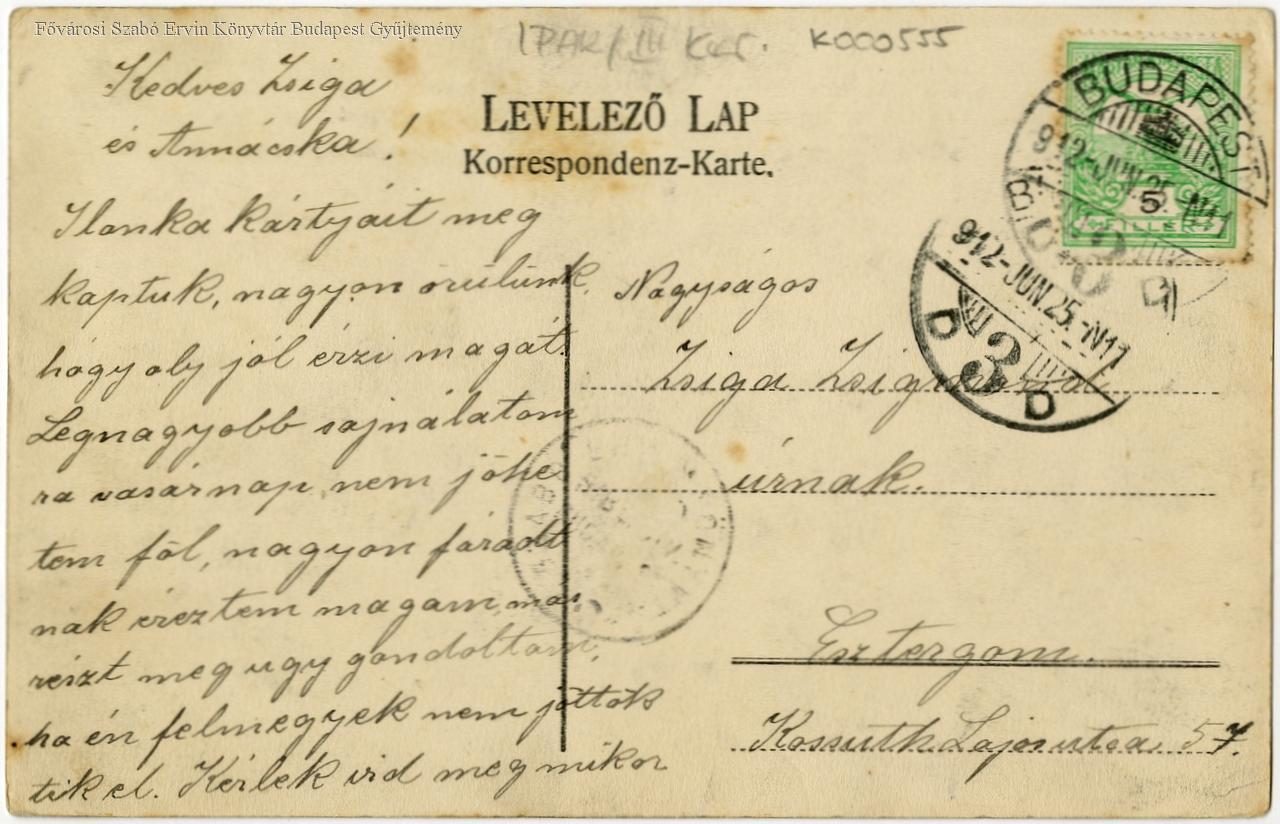 Fővárosi Szabó Ervin Könyvtár Budapest Gyűjtemény
IPAR/III K000555
LEVELEZŐ LAP
Korrespondenz-Karte.
BUDAPEST
912-JUN.25.-N11
5
FILLÉR
912-JUN.25.-N11
D 3 D
Kedves Zsiga
és Annácska!
Ilonka kártyáit meg
kaptuk, nagyon örülünk,
hogy oly jól érzi magát.
Legnagyobb sajnálatom
ra vasárnap nem jöhe
tem föl, nagyon fáradt
nak éreztem magam, más
részt meg ugy gondoltam,
ha én felmegyek nem jöttök
tik el. Kérlek ird meg mikor
Nagyságos
Zsiga Zsigmond
úrnak.
Esztergom.
Kossuth Lajos utca 57.